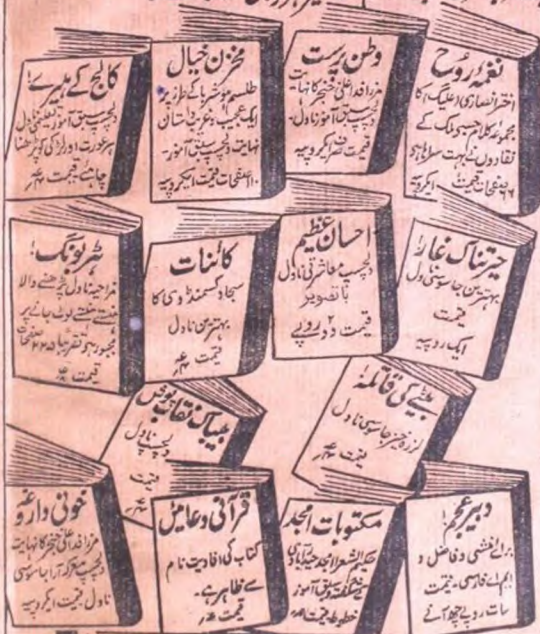 نغمۂ روح
اختر انصاری (علیگ) کا
مجموعہ کلام جسے ملک کے
نقادوں نے بہت سراہا ہے
صفحات قیمت ایکروپیہ
وطن پرست
مرزا فدا علی خنجر کا نہایت
دلچسپ سبق آموز ناول۔
قیمت صرف ایکروپیہ
مخزن خیال
طلسم ہوشربا کے طرز پر
ایک عجیب و غریب داستان
نہایت دلچسپ سبق آموز۔
۱۱۰ صفحات قیمت ایکروپیہ
کالج کے ہیرے!
دلچسپ سبق آموز تعلیمی ناول
ہر عورت اور لڑکی کو پڑھنا
چاہئے۔ قیمت
حیرتناک غار!
بہترین جاسوسی ناول
قیمت
ایک روپیہ
احسان عظیم
دلچسپ معاشرتی ناول
با تصویر
قیمت دو روپے
کائنات
سجاد کسمنڈوی کا
بہترین ناول
قیمت
ہڑبونگ!
مزاحیہ ناول پڑھنے والا
ہنستے ہنستے لوٹ جانے پر
مجبور ہو تقریباً ۲۲۵ صفحات
قیمت
بیٹے کی قاتلہ!
لرزہ خیز جاسوسی ناول
قیمت
بھیانک نقاب پوش
دلچسپ ناول
قیمت
دبیر عجم!
برائے منشی و فاضل و
ایم اے فارسی۔ قیمت
سات روپے چھ آنے
مکتوبات امجد
حکیم الشعرا امجد حیدرآبادی
کے حکمت و سبق آموز
خطوط قیمت
قرآنی دعائیں
کتاب کی افادیت نام
سے ظاہر ہے۔
قیمت
خونی داروغہ
مرزا فدا علی خنجر کا نہایت
دلچسپ معرکہ آرا جاسوسی
ناول۔ قیمت ایکروپیہ